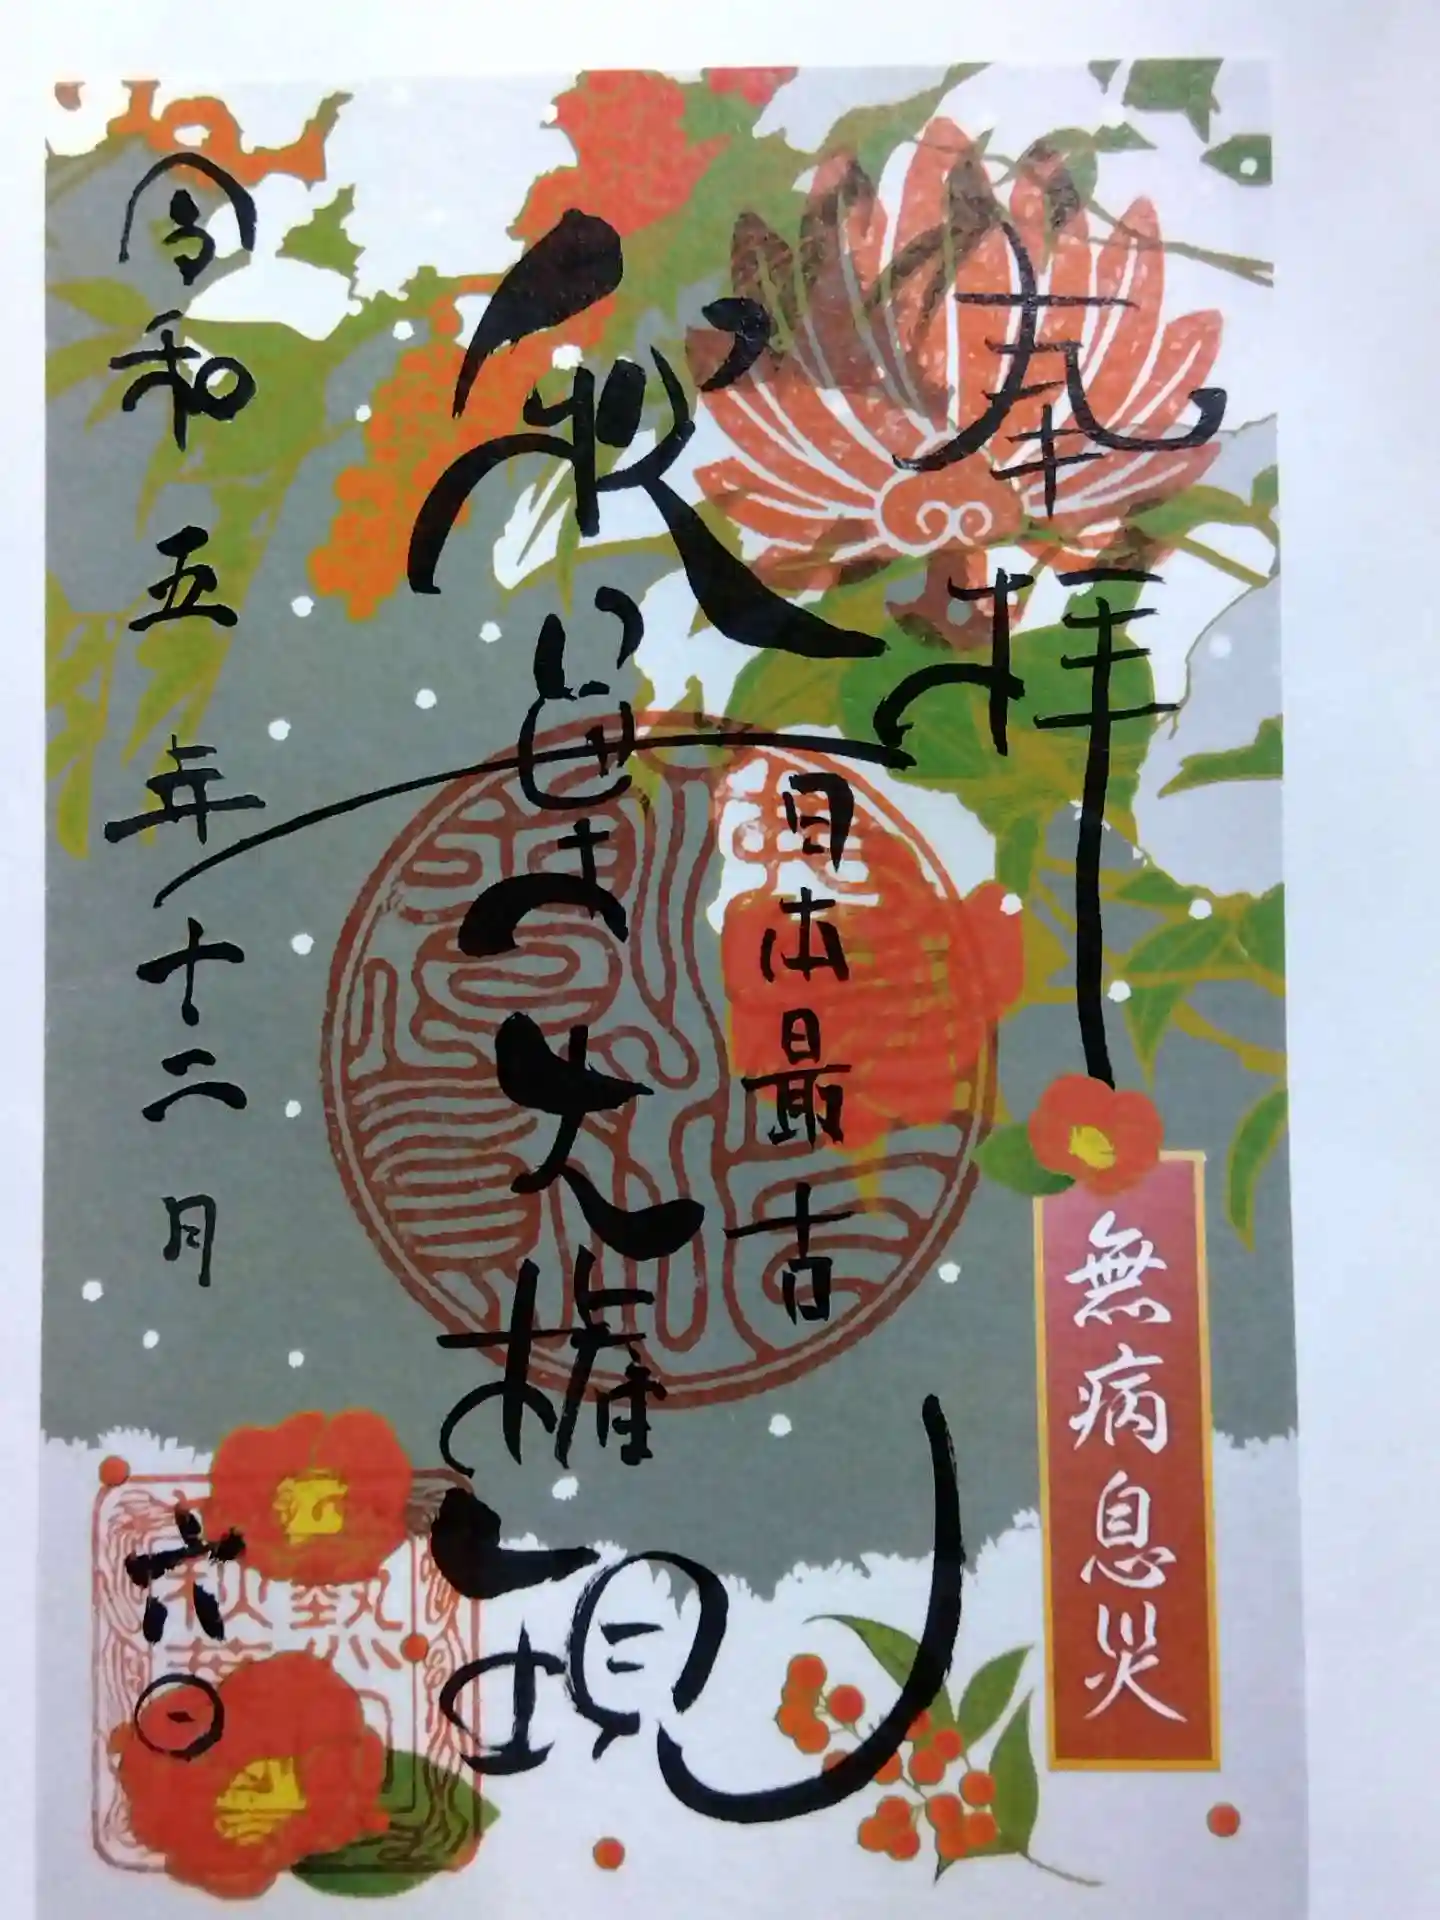 奉拝
無病息災
日本最古
秋葉大権現
令和五年十二月六日